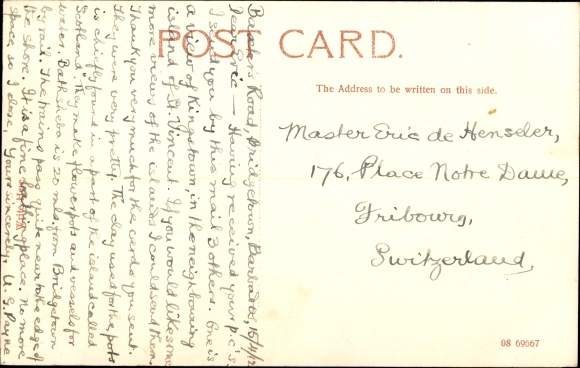 POST CARD.
The Address to be written on this side.
Master Eric de Henseler,
176, Place Notre Dame,
Fribourg,
Switzerland,
08 69667
Road, Bridgetown, Barbados, 15/4/12
Dear Eric — Having received your p.c.'s
I send you by this mail 3 others. One is
a view of Kingstown, in the neighbouring
island of St. Vincent. If you would like some
more views of the islands I could send them.
Thank you very much for the cards you sent.
They were very pretty. The clay used for the pots
is chiefly found in a part of the island called
"Scotland" They make flowerpots and vessels for
water. Bathsheba is 20 mls. from Bridgetown
by rail. The trains pass quite near to the edge of
the shore. It is a fine bathing place. No more
space, so I close, Yours sincerely, A. G. Payne.